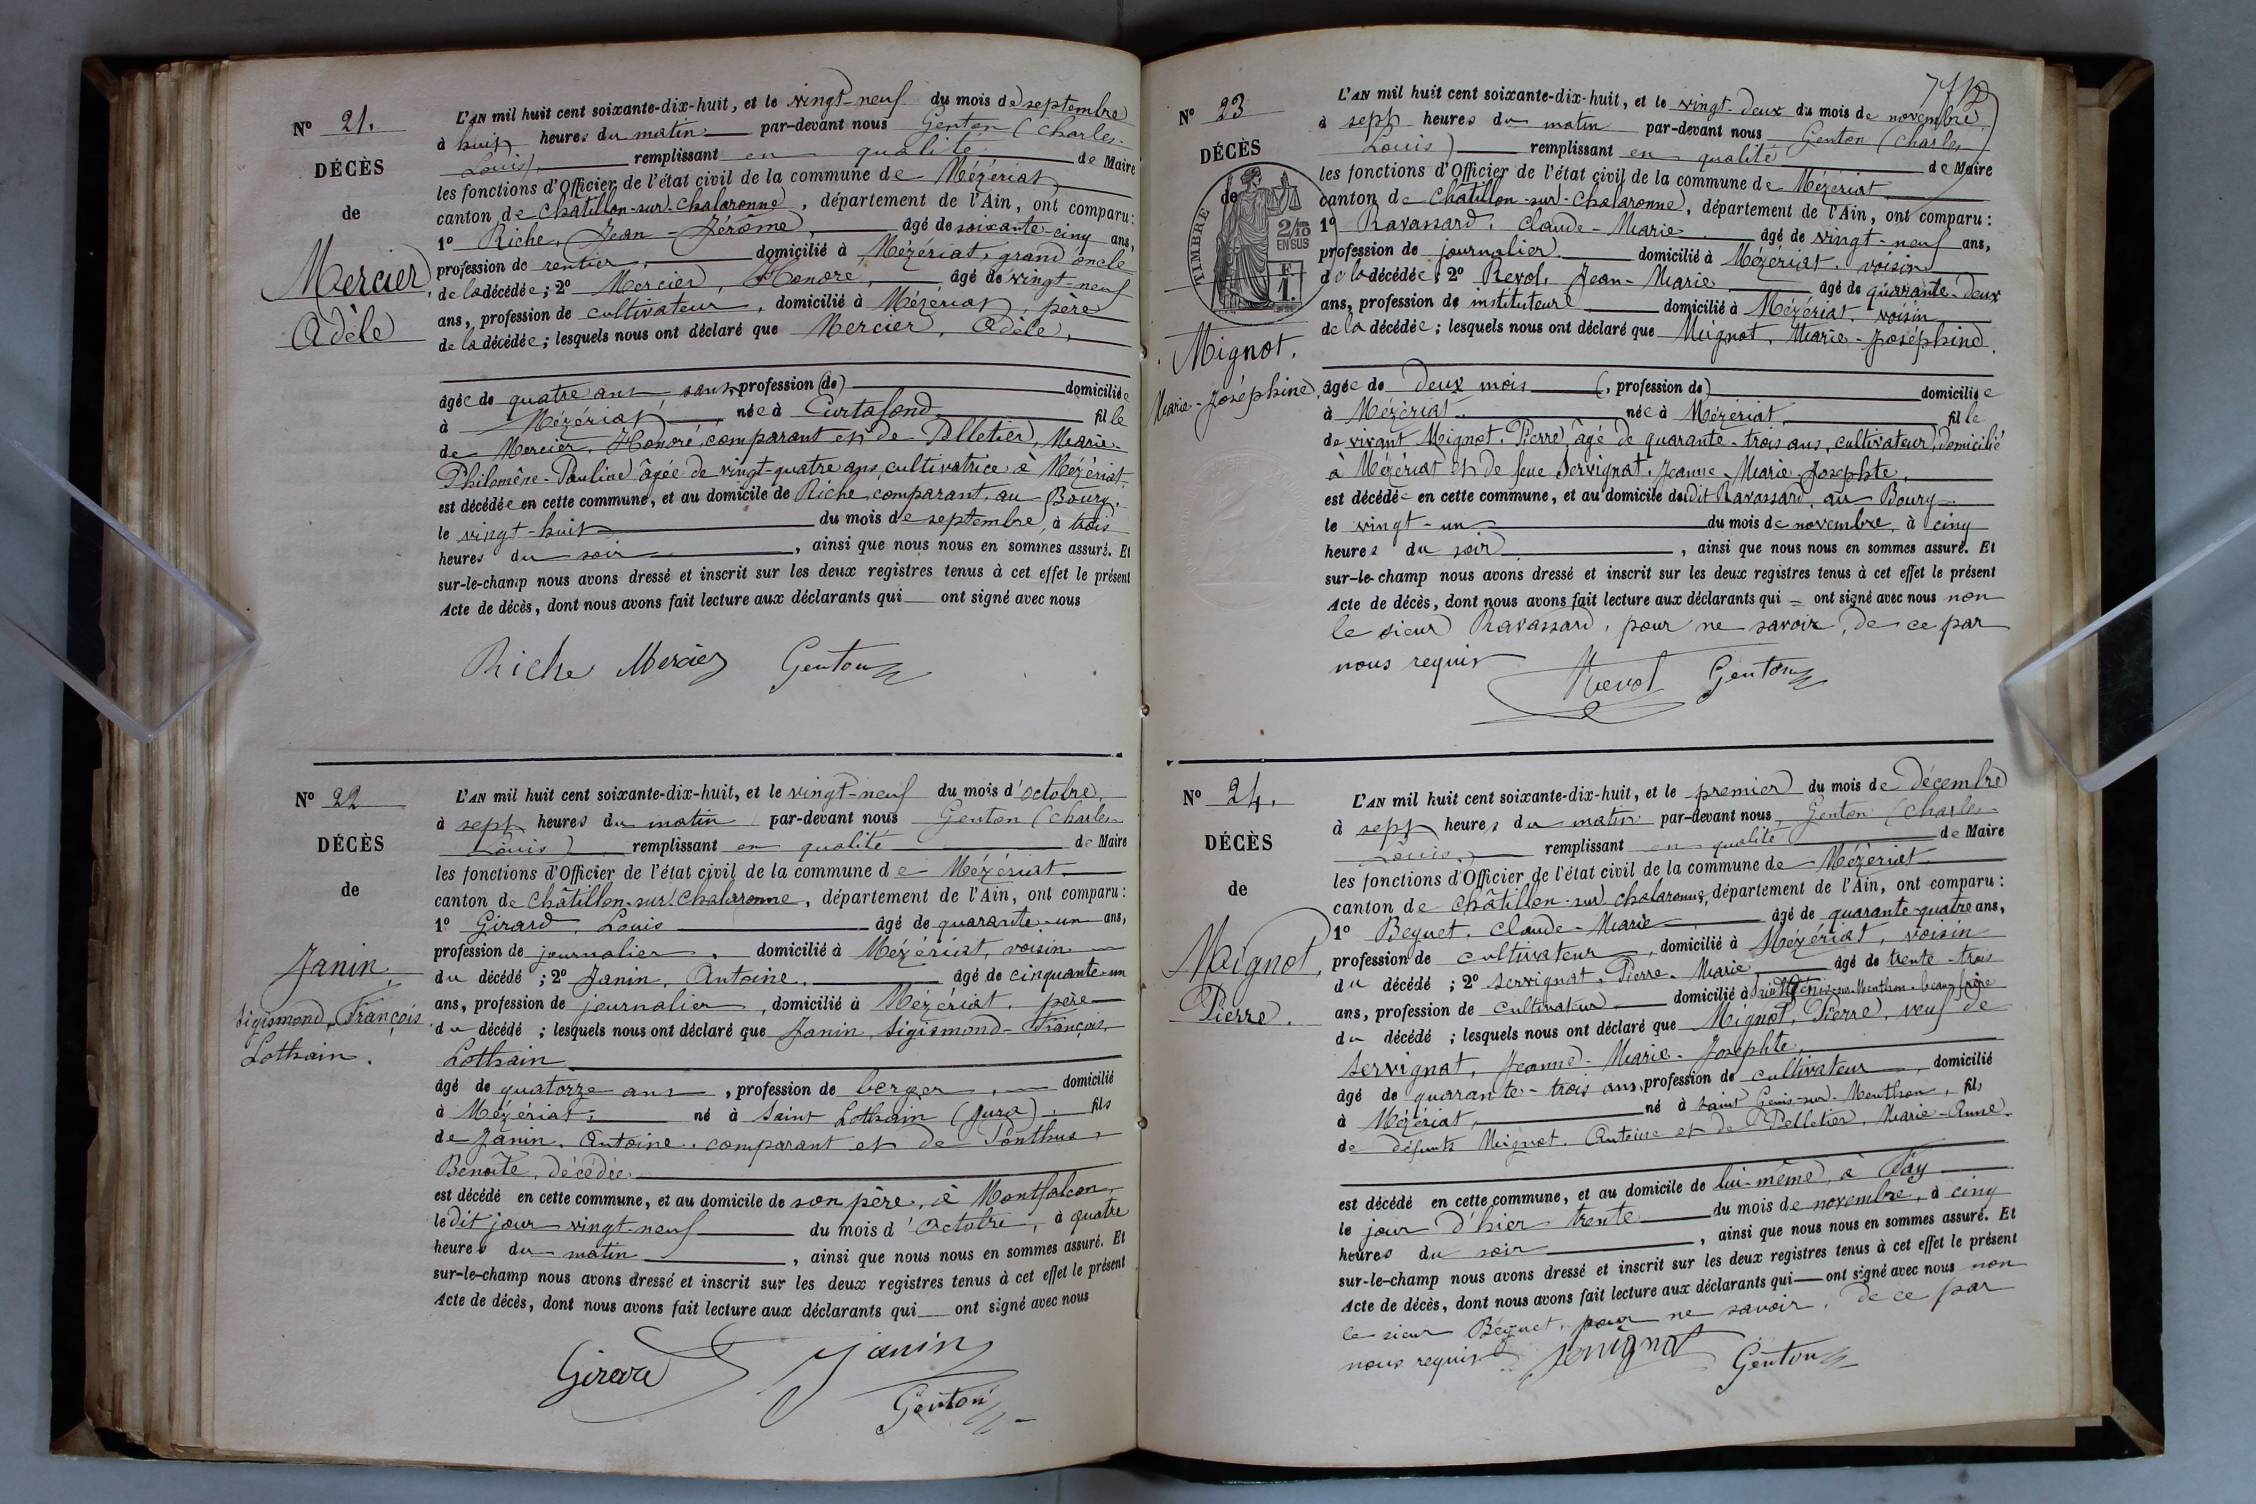 N° 21.
DÉCÈS
de
Mercier,
Adèle
L'AN mil huit cent soixante-dix-huit, et le vingt-neuf du mois de septembre
à huit heures du matin par-devant nous Genton (Charles-
Louis) remplissant en qualité de Maire
les fonctions d'Officier de l'état civil de la commune de Mézériat
canton de Châtillon-sur-Chalaronne, département de l'Ain, ont comparu :
1° Riche, Jean-Jérôme, âgé de soixante-cinq ans,
profession de rentier, domicilié à Mézériat, grand oncle
de la décédée ; 2° Mercier, Honoré, âgé de vingt-neuf
ans, profession de cultivateur, domicilié à Mézériat, père
de la décédée ; lesquels nous ont déclaré que Mercier, Adèle,
âgée de quatre ans sans profession (de) domiciliée
à Mézériat, née à Curtafond, fille
de Mercier, Honoré, comparant et de Pelletier, Marie-
Philomène-Pauline âgée de vingt-quatre ans, cultivatrice à Mézériat.
est décédée en cette commune, et au domicile de Riche, comparant, au Bourg,
le vingt-huit du mois de septembre, à trois
heures du soir, ainsi que nous nous en sommes assuré. Et
sur-le-champ nous avons dressé et inscrit sur les deux registres tenus à cet effet le présent
Acte de décès, dont nous avons fait lecture aux déclarants qui ont signé avec nous
Riche Mercier Genton
N° 22
DÉCÈS
de
Janin,
Sigismond, François
Lothain.
L'AN mil huit cent soixante-dix-huit, et le vingt-neuf du mois d'octobre,
à sept heures du matin par-devant nous Genton (Charles-
Louis) remplissant en qualité de Maire
les fonctions d'Officier de l'état civil de la commune de Mézériat
canton de Châtillon-sur-Chalaronne, département de l'Ain, ont comparu :
1° Girard, Louis âgé de quarante-un ans,
profession de journalier, domicilié à Mézériat, voisin
du décédé ; 2° Janin, Antoine, âgé de cinquante-un
ans, profession de journalier, domicilié à Mézériat, père
du décédé ; lesquels nous ont déclaré que Janin, Sigismond-François,
Lothain
âgé de quatorze ans, profession de berger, domicilié
à Mézériat, né à Saint Lothain (Jura), fils
de Janin, Antoine, comparant et de Ponthus,
Benoîte, décédée
est décédé en cette commune, et au domicile de son père, à Montfalcon,
le dit jour vingt-neuf du mois d'octobre, à quatre
heures du matin, ainsi que nous nous en sommes assuré. Et
sur-le-champ nous avons dressé et inscrit sur les deux registres tenus à cet effet le présent
Acte de décès, dont nous avons fait lecture aux déclarants qui ont signé avec nous
Girard Janin
Genton
N° 23
DÉCÈS
de
TIMBRE
2/10
EN SUS
F
1.
Mignot.
Marie-Joséphine
L'AN mil huit cent soixante-dix-huit, et le vingt-deux du mois de novembre,
à sept heures du matin par-devant nous Genton (Charles-
Louis) remplissant en qualité de Maire
les fonctions d'Officier de l'état civil de la commune de Mézériat
canton de Châtillon-sur-Chalaronne, département de l'Ain, ont comparu :
1° Ravassard, Claude-Marie âgé de vingt-neuf ans,
profession de journalier domicilié à Mézériat, voisin
de la décédée ; 2° Revol, Jean-Marie âgé de quarante-deux
ans, profession de instituteur domicilié à Mézériat, voisin
de la décédée ; lesquels nous ont déclaré que Mignot, Marie-Joséphine,
âgée de deux mois (, profession de) domiciliée
à Mézériat, née à Mézériat, fille
de vivant Mignot, Pierre, âgé de quarante-trois ans, cultivateur, domicilié
à Mézériat et de feue Servignat, Jeanne-Marie-Josephte,
est décédée en cette commune, et au domicile dudit Ravassard, au Bourg
le vingt-un du mois de novembre, à cinq
heures du soir, ainsi que nous nous en sommes assuré. Et
sur-le-champ nous avons dressé et inscrit sur les deux registres tenus à cet effet le présent
Acte de décès, dont nous avons fait lecture aux déclarants qui ont signé avec nous non
le sieur Ravassard, pour ne savoir, de ce par
nous requis Revol Genton
N° 24.
DÉCÈS
de
Mignot,
Pierre.
L'AN mil huit cent soixante-dix-huit, et le premier du mois de décembre
à sept heures du matin par-devant nous, Genton (Charles-
Louis) remplissant en qualité de Maire
les fonctions d'Officier de l'état civil de la commune de Mézériat
canton de Châtillon-sur-Chalaronne, département de l'Ain, ont comparu :
1° Bequet, Claude-Marie âgé de quarante-quatre ans,
profession de cultivateur, domicilié à Mézériat, voisin
du décédé ; 2° Servignat, Pierre-Marie, âgé de trente-trois
ans, profession de cultivateur domicilié à sur-Menthon, beau-frère
du décédé ; lesquels nous ont déclaré que Mignot, Pierre, veuf de
Servignat, Jeanne-Marie-Josephte
âgé de quarante-trois ans, profession de cultivateur, domicilié
à Mézériat, né à Saint Genis-sur-Menthon, fils
de défunts Mignot, Antoine et de Pelletier, Marie-Anne.
est décédé en cette commune, et au domicile de lui-même, à Fay
le jour d'hier trente du mois de novembre, à cinq
heures du soir, ainsi que nous nous en sommes assuré. Et
sur-le-champ nous avons dressé et inscrit sur les deux registres tenus à cet effet le présent
Acte de décès, dont nous avons fait lecture aux déclarants qui ont signé avec nous non
le sieur Béquet, pour ne savoir, de ce par
nous requis Servignat Genton